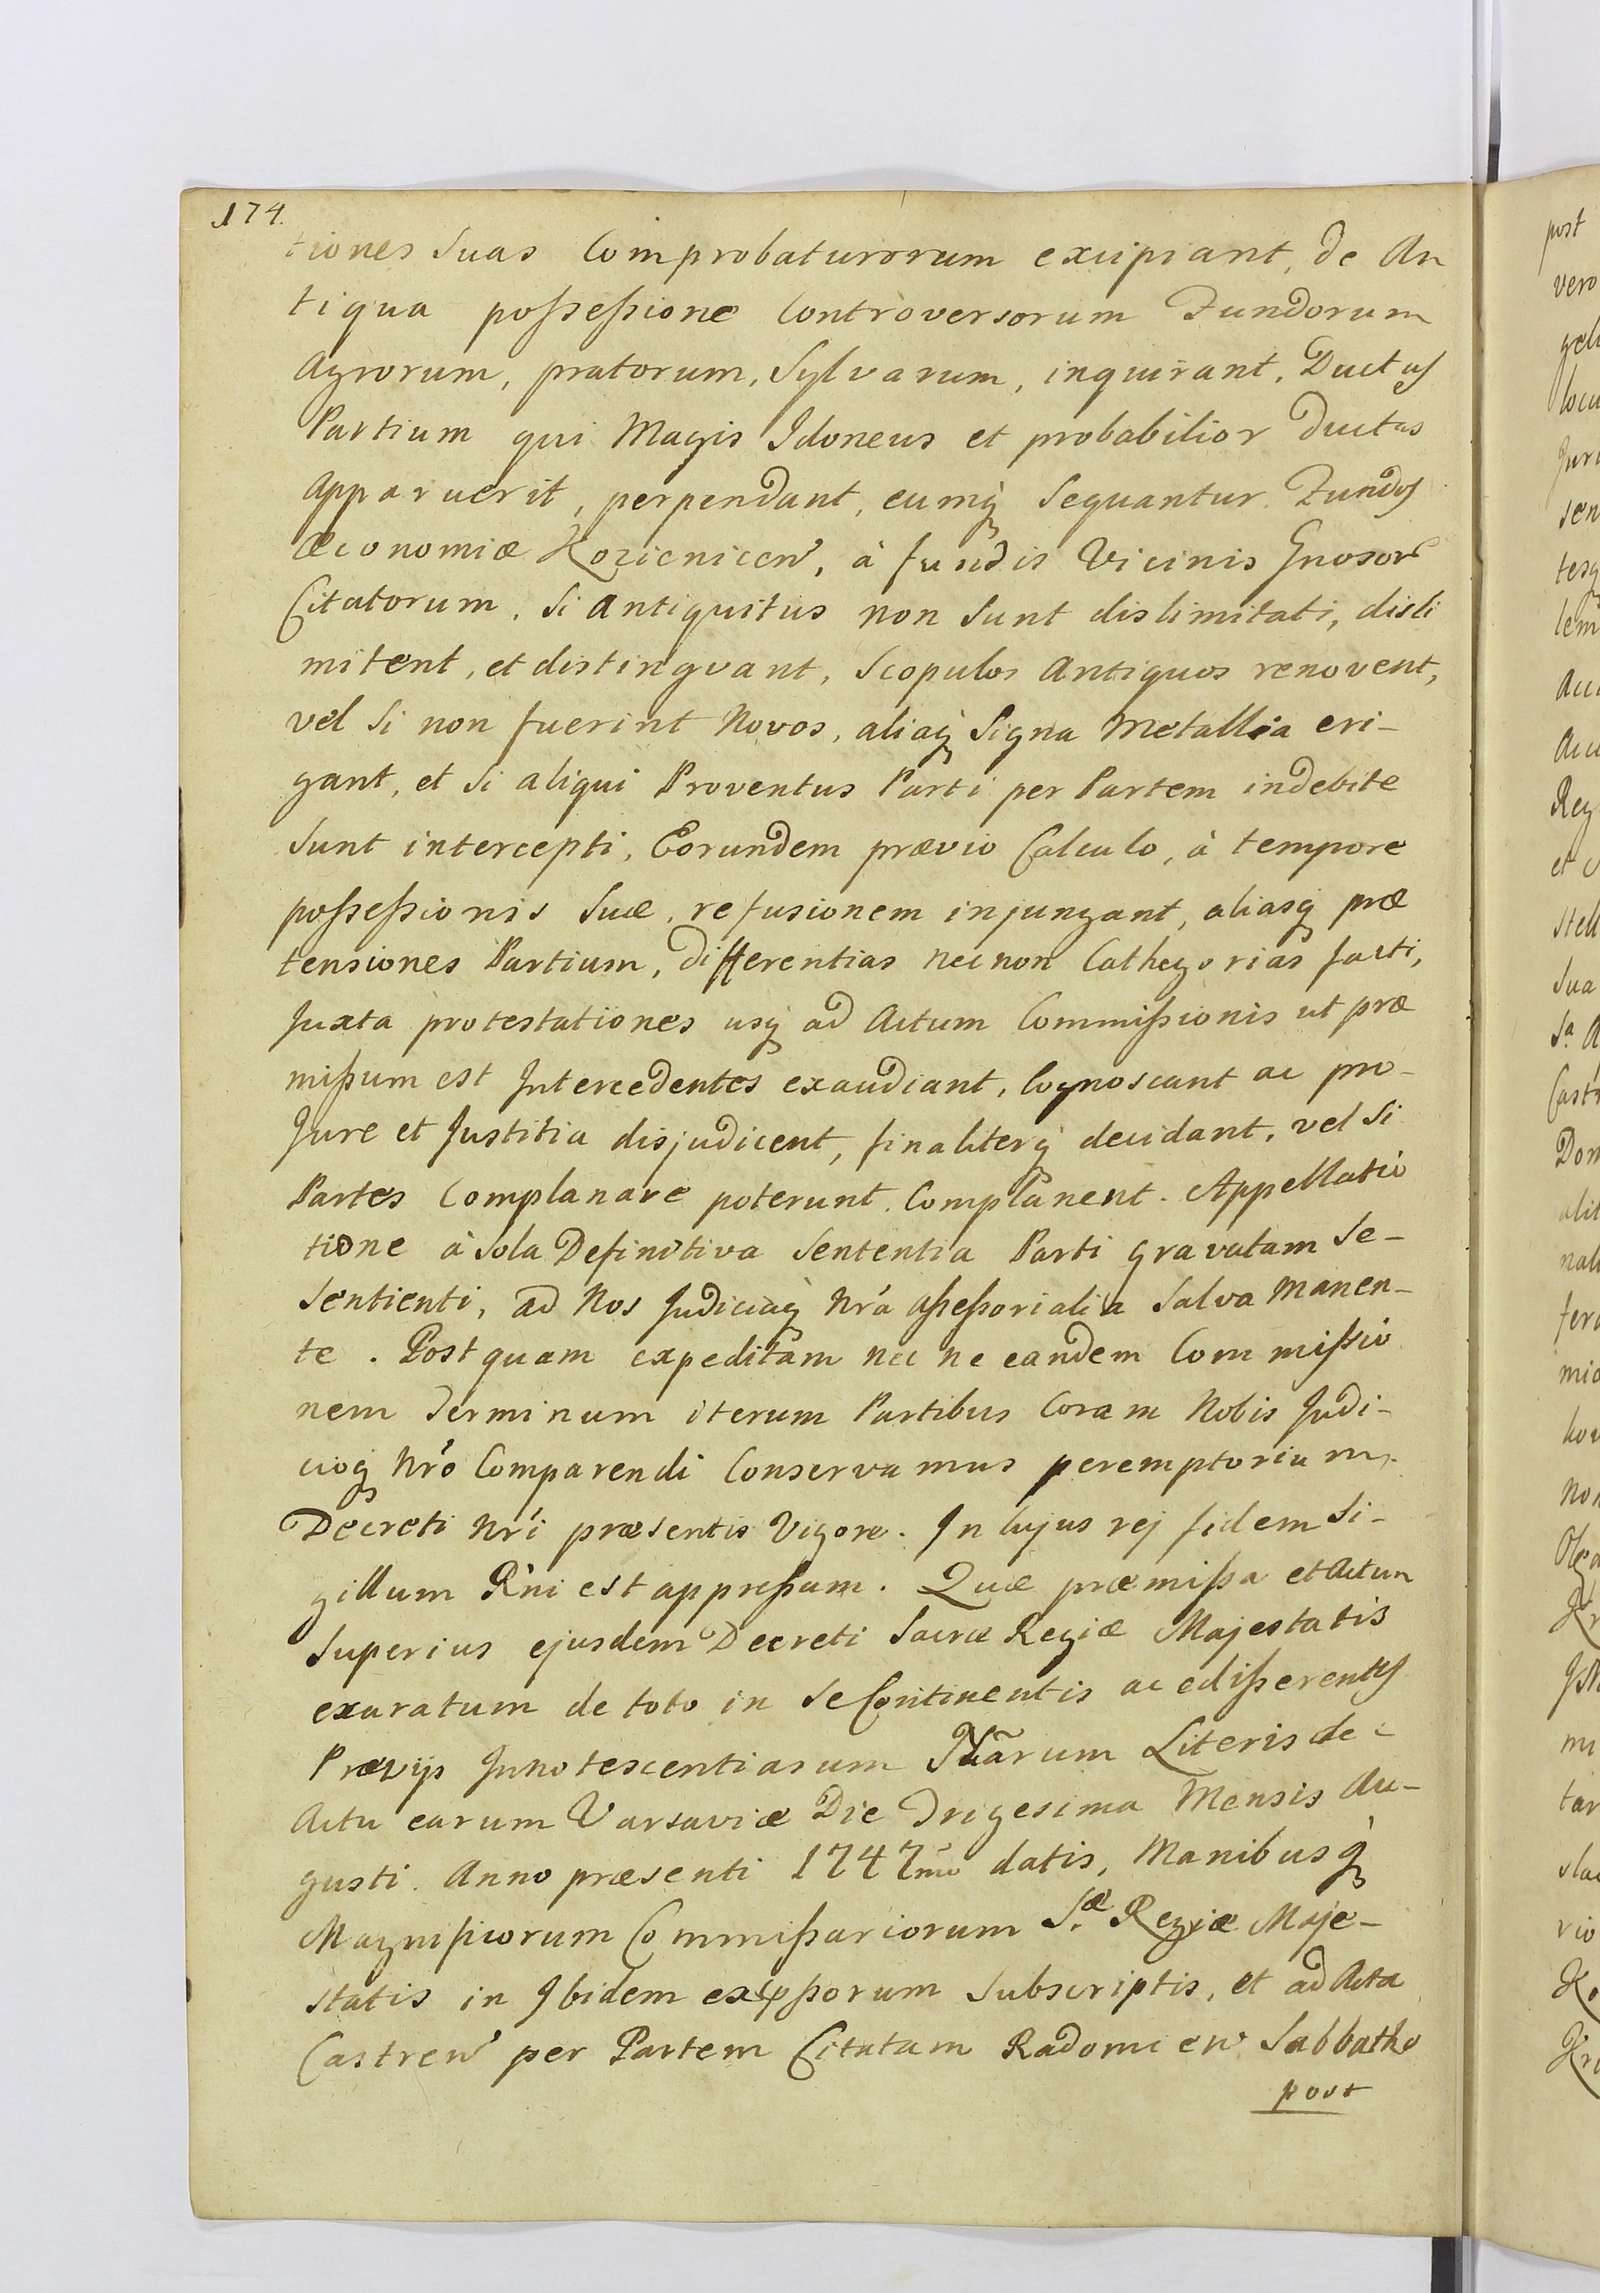 174.
tiones Suas Comprobaturorum excipiant, de An
tiqua possessione Controversorum Fundorum
Agrorum, pratorum, Sylvarum, inquirant, Ductus
Partium qui Magis Idoneus et probabilior ductus
Apparuerit, perpendant, eumq₃ Sequantur. Fundos
Œconomiæ Kozienicen̄, à fundis Vicinis Gnosor̄
Citatorum, Si Antiquitus non Sunt dislimitati, disli
mitent, et distingvant, Scopulos Antiquos renovent,
vel Si non fuerint Novos, aliaq₃ Signa Metallia eri-
gant, et Si aliqui Proventus Parti per Partem indebite
Sunt intercepti, Eorundem prævio Calculo, à tempore
possessionis Suæ, refusionem injungant, aliasq₃ præ
tensiones Partium, differentias nec non Cathegorias facti,
Juxta protestationes usq₃ ad Actum Commissionis ut præ
missum est Intercedentes exaudiant, Cognoscant ac pro-
Jure et Justitia disjudicent, finaliterq₃ decidant, vel Si
Partes Complanare poterunt, Complanent. Appellatio
tione à Sola Definitiva Sententia Parti gravatam Se-
Sentienti, ad Nos Judiciaq₃ Nr̃a Assessorialia Salva Manen-
te. Post quam expeditam nec ne eandem Commissio
nem Terminum iterum Partibus Coram Nobis Judi-
cioq₃ Nr̃o Comparendi Conservamus peremptorium.
Decreti Nr̃i præsentis Vigore. In hujus rej fidem Si-
gillum Rn̄i est appressum. Quæ præmissa et Actum
Superius ejusdem Decreti Sacræ Regiæ Majestatis
exaratum de toto in Se Continentis ac edisserentis
Prævijs Innotescentiarum Literis de
Actu earum Varsaviæ Die Trigesima Mensis Au-
gusti. Anno præsenti 1747mo datis, Manibusq₃
Magnificorum Commissariorum S.æ Regiæ Maje-
statis in Ibidem expssorum Subscriptis, et ad Acta
Castren̄ per Partem Citatam Radomien̄ Sabbatho
post
post
vero
Reg
et
Sua
Sª
mi
tar